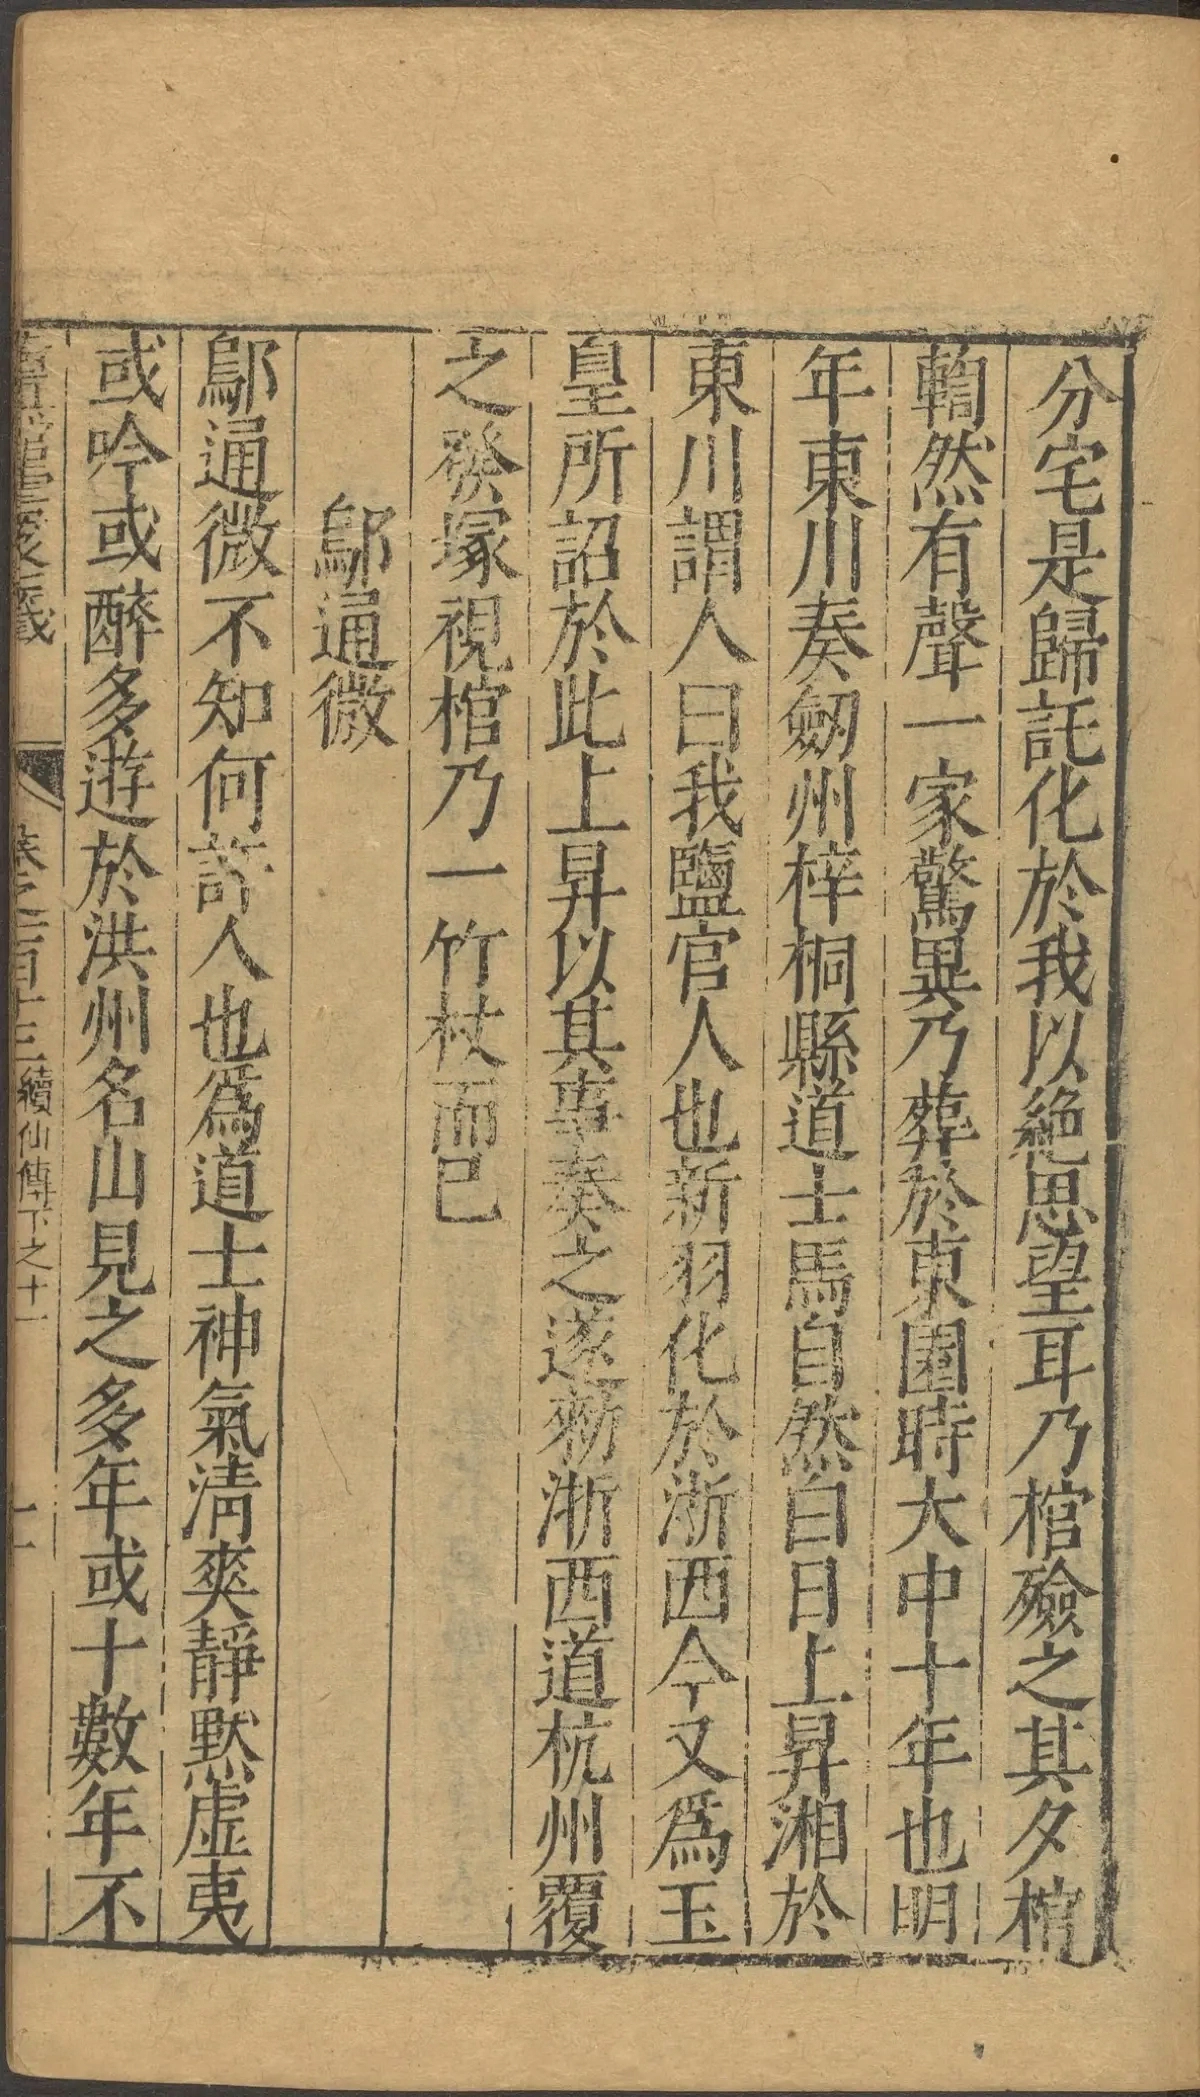 分宅是歸託化於我以絕思望耳乃棺殮之其夕棺
輷然有聲一家驚異乃葬於東園時大中十年也明
年東川奏劒州梓桐縣道士馬自然白日上昇湘於
東川謂人曰我鹽官人也新羽化於浙西今又爲玉
皇所詔於此上昇以其事奏之遂勑浙西道杭州覆
之發塚視棺乃一竹杖而已
鄔通微
鄔通微不知何許人也爲道士神氣清爽靜默虛夷
或吟或醉多遊於洪州名山見之多年或十數年不
卷之一百十三續仙傳下之十一